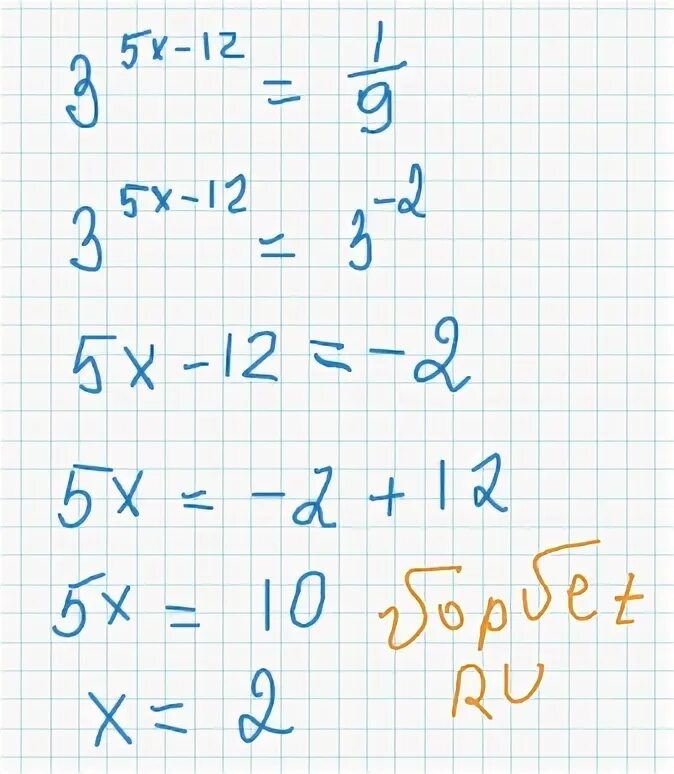 3^(5x-12) = 1/9
3^(5x-12) = 3^(-2)
5x - 12 = -2
5x = -2 + 12
5x = 10
x = 2
√op√et
RU